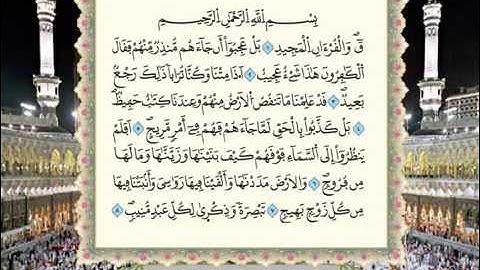 بِسْمِ اِللَّهِ اِلرَّحْمَٰنِ اِلرَّحِيمِ
قَٓ وَالْقُرْءَانِ اِلْمَجِيدِ ١ بَلْ عَجِبُوٓاْ أَن جَآءَهُم مُّنذِرٌ مِّنْهُمْ فَقَالَ
اَلْكَٰفِرُونَ هَٰذَا شَےْءٌ عَجِيبٌ ٢ اَ.ذَا مِتْنَا وَكُنَّا تُرَاباً ذَٰلِكَ رَجْعُۢ
بَعِيدٌ ٣ قَدْ عَلِمْنَا مَا تَنقُصُ اُلْأَرْضُ مِنْهُمْ وَعِندَنَا كِتَٰبٌ حَفِيظٌ
٤ بَلْ كَذَّبُواْ بِالْحَقِّ لَمَّا جَآءَهُمْ فَهُمْ فِےٓ أَمْرٍ مَّرِيجٍ ٥ اَفَلَمْ
يَنظُرُوٓاْ إِلَى اَلسَّمَآءِ فَوْقَهُمْ كَيْفَ بَنَيْنَٰهَا وَزَيَّنَّٰهَا وَمَا لَهَا
مِن فُرُوجٍ ٦ وَالْأَرْضَ مَدَدْنَٰهَا وَأَلْقَيْنَا فِيهَا رَوَٰسِيَ وَأَنۢبَتْنَا فِيهَا
مِن كُلِّ زَوْجِۢ بَهِيجٍ ٧ تَبْصِرَةً وَذِكْرَىٰ لِكُلِّ عَبْدٍ مُّنِيبٍ ٨